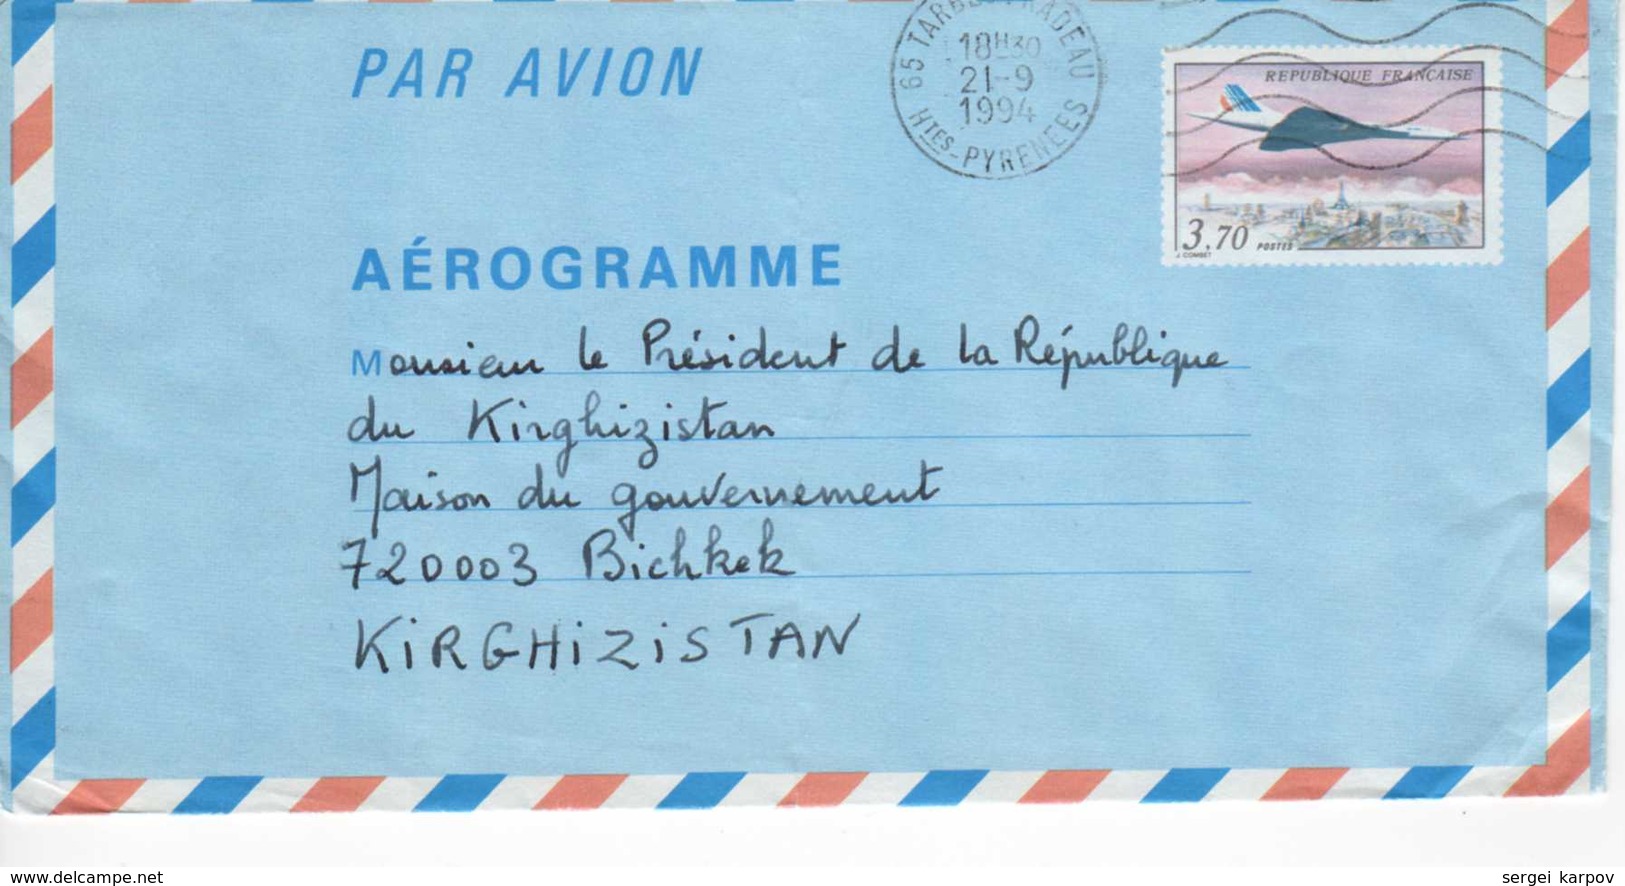 PAR AVION
65 TARBES PRADEAU
18H30
21-9
1994
HTES-PYRENEES
REPUBLIQUE FRANÇAISE
3,70 POSTES
J. COMBET
AÉROGRAMME
Monsieur le Président de la République
du Kirghizistan
Maison du gouvernement
720003 Bichkek
KiRGHiZiSTAN
www.delcampe.net
sergei karpov